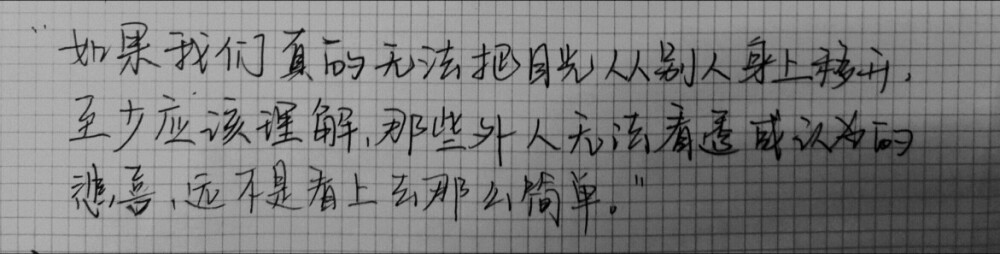 “如果我们真的无法把目光从别人身上移开，
至少应该理解，那些外人无法看透或认为的
悲喜，远不是看上去那么简单。”